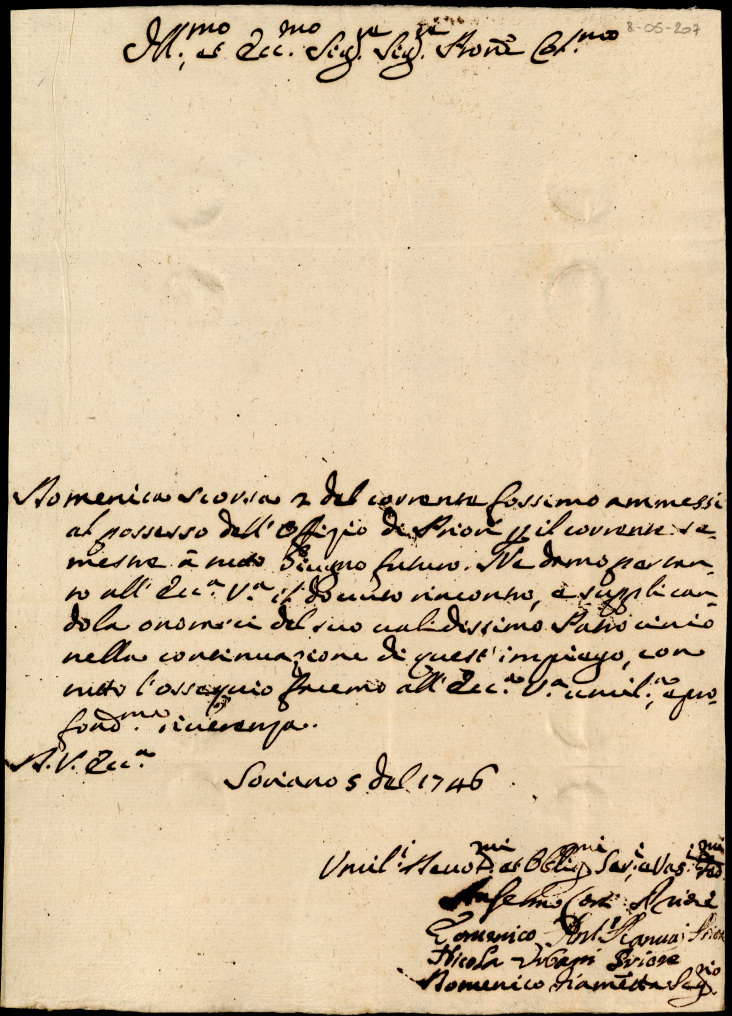 8-05-207
Ill.mo, et Ecc.mo Sig.re Sig.re Prone Col.mo
Domenica scorsa 2 del corrente fossimo ammessi
al possesso dell'Offizio di Priori p il corrente se-
mestre à tutto Giugno futuro. Ne damo pertan-
to all'Ecc.a V.a il dovuto riscontro, e supplican-
dola onorarci del suo validissimo Patrocinio
nella continuazione di quest'impiego, con
tutto l'ossequio facemo all'Ecc.a V.a umil.a, e pro-
fond.ma riverenza.
A. V. Ecc.a
Soriano 5 del 1746
Umil.i Devot.mi et Oblig.mi Ser.i e Vas.i
Anselmo Priore
Domenico Ant.o Priore
Nicola Urbani Priore
Domenico Fiametta Seg.rio